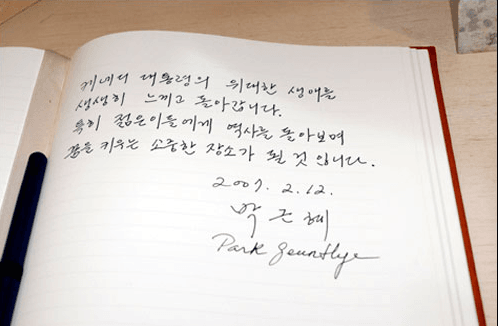 케네디 대통령의 위대한 생애를
생생히 느끼고 돌아갑니다.
특히 젊은이들에게 역사를 돌아보며
꿈을 키우는 소중한 장소가 될 것 입니다.
2007. 2. 12.
박 근 혜
Park Geun Hye